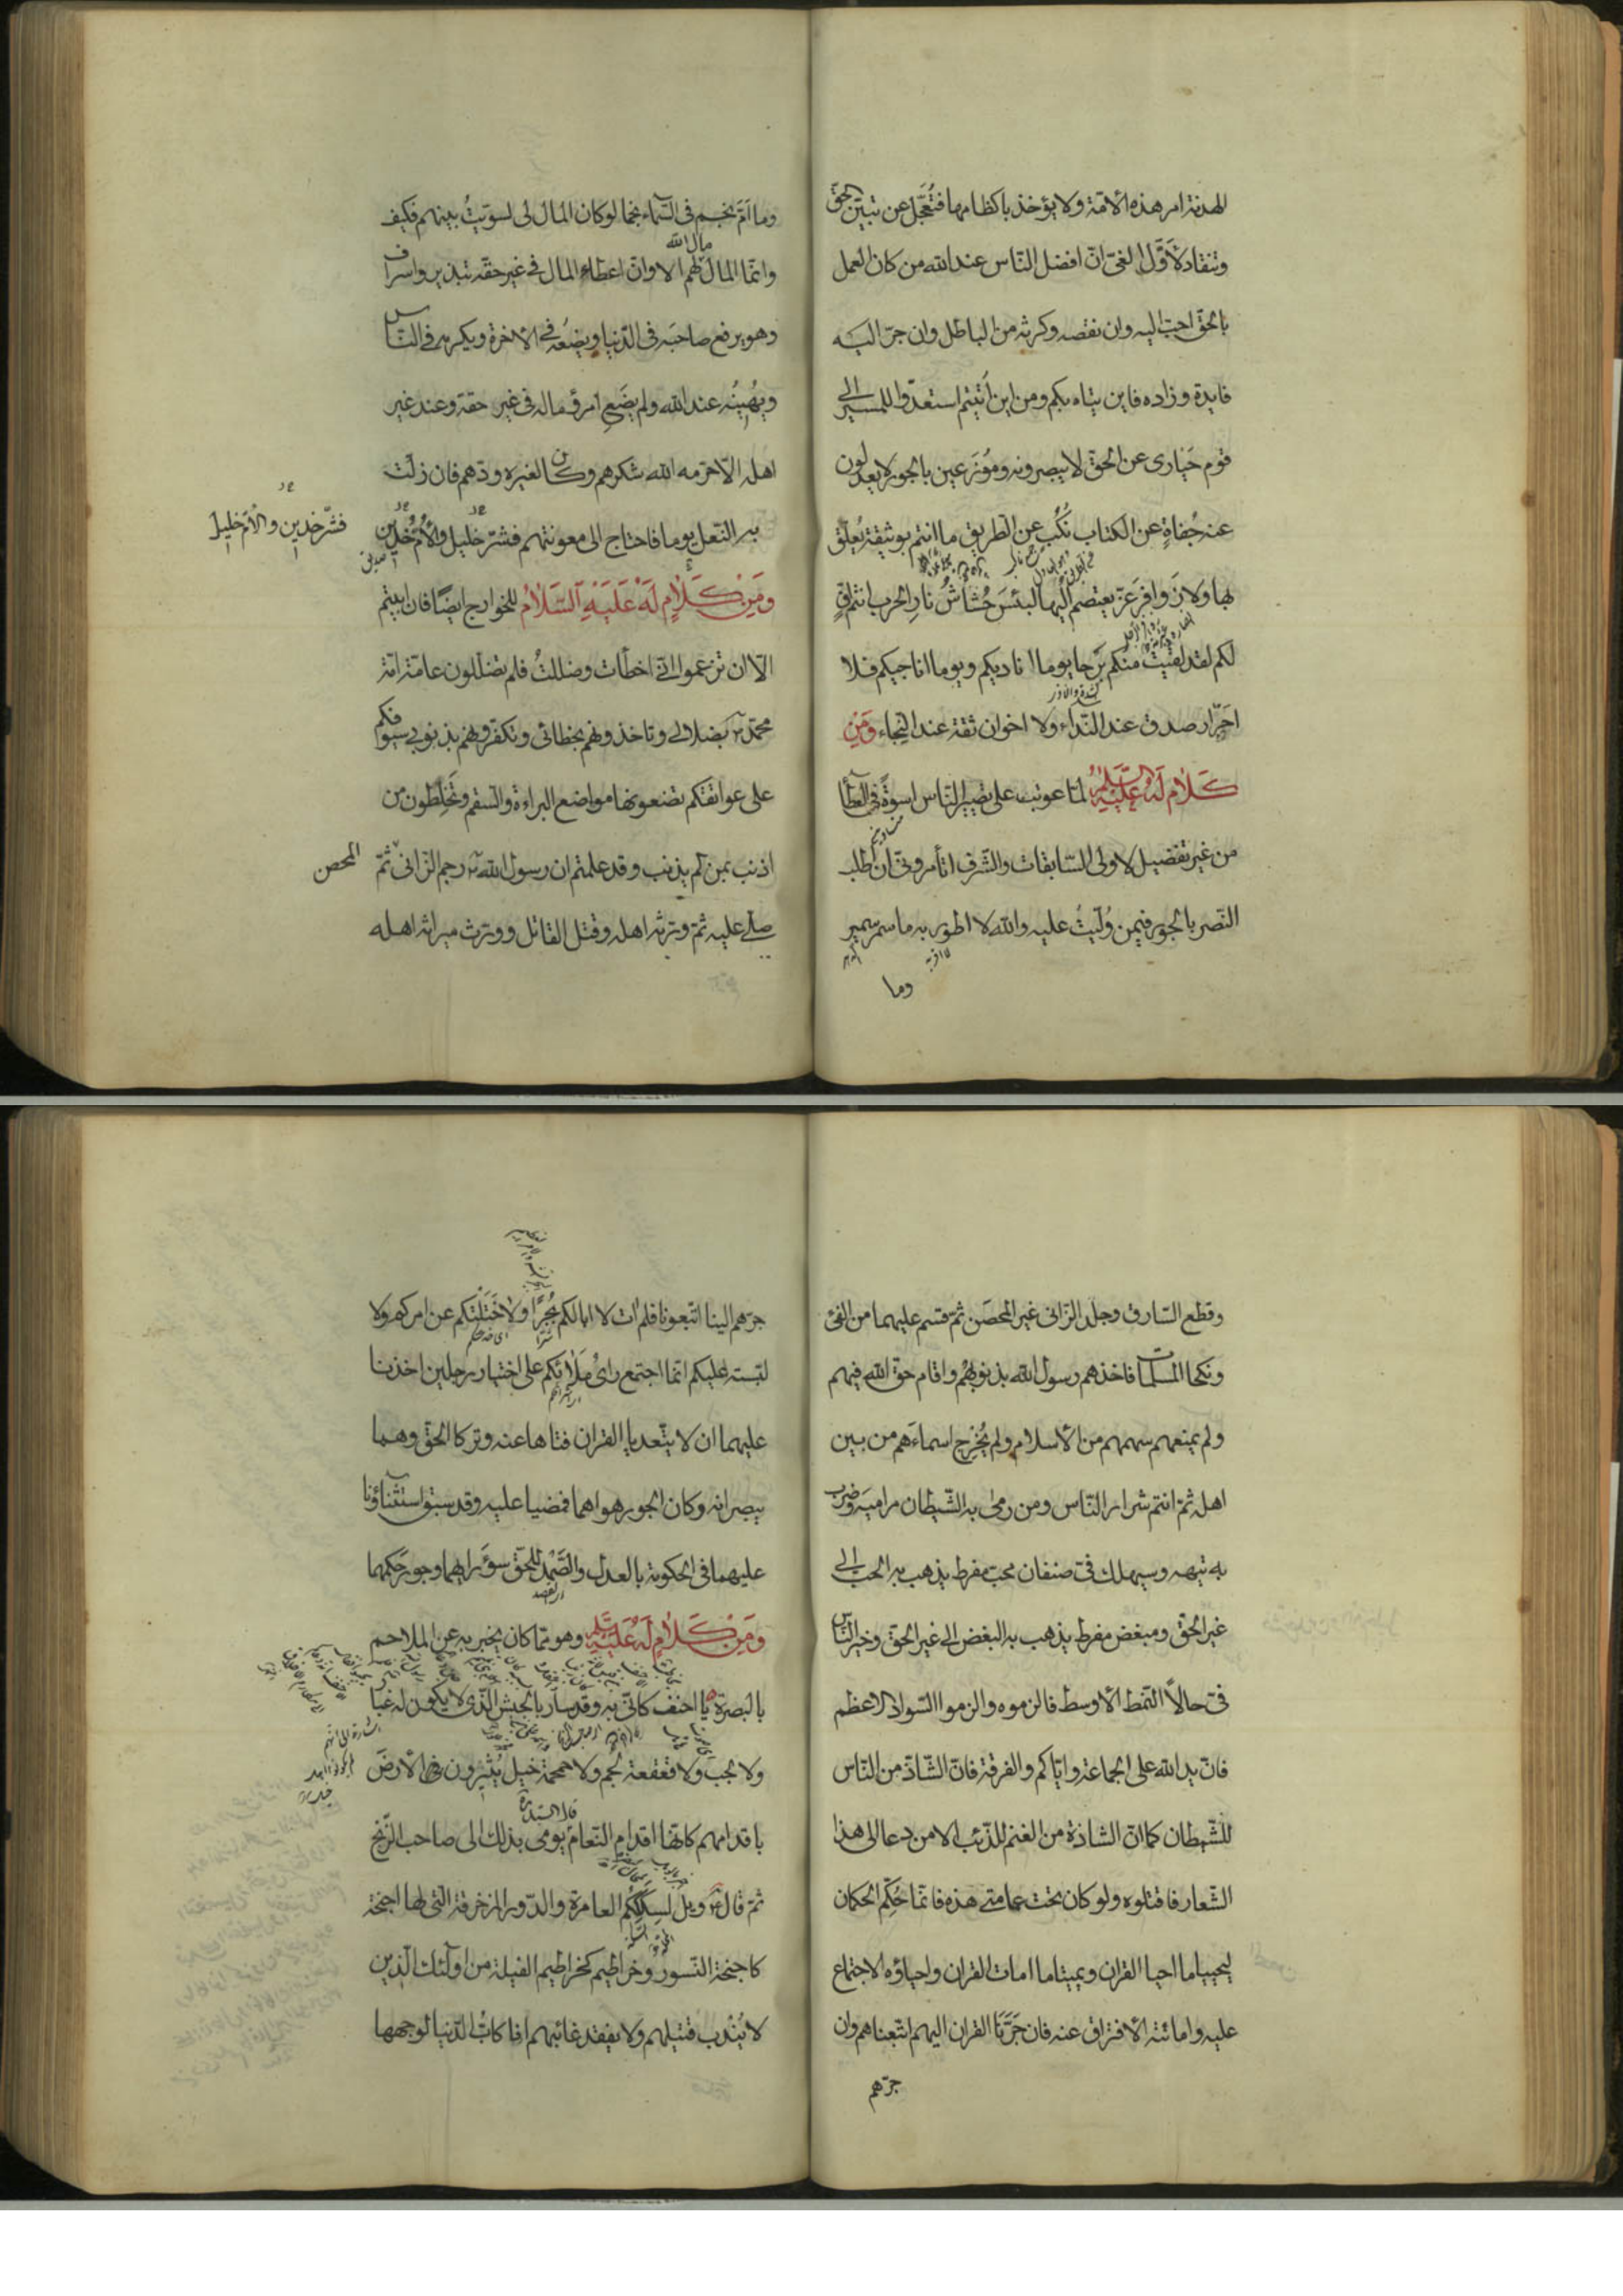 الهدنة امر هذه الأمّة ولا يؤخذ باكظامها فتُعَجَّل عن تبيّن الحقّ
وتنقاد لأوَّل الغىّ انّ افضل النّاس عند الله من كان العمل
بالحقّ احبّ اليه وان نقصه وكرثه من الباطل وان جرّ اليه
فايدة وزاده فاين يتاه بكم ومن اين اُتيتم استعدّوا للمسير الى
قوم حَيارى عن الحقّ لا يبصرونه ومُوزَعين بالجور لا يعدلون
عنه جُفاةٍ عن الكتاب نُكُبٍ عن الطريق ما انتم بوثيقة يُعلّق
بها ولا زَوافِر عِزّ يعتصم اليها لبئس حُشّاشُ نارِ الحرب انتم افٍّ
لكم لقد لقيتُ منكم بَرَحا يوما اناديكم ويوما اناجيكم فلا
احرار صدق عند النّداء ولا اخوان ثقة عند النجاء وَمِن
كَلامٍ لَهُ عَلَيْهِ السَّلام لمّا عوتب على تصيير النّاس اسوةً فى العطأ
من غير تفضيل لاولى السّابقات والشّرف اتأمرونّى ان اطلب
النّصر بالجور فيمن وُلّيتُ عليه والله لا اطور به ما سمر سمير
وما
وما اَمّ نجم فى السّماء نجما لو كان المال لى لسوّيتُ بينهم فكيف
مال الله
وانّما المال لهم الا وانّ اعطاء المال فى غير حقّه تبذير واسراف
وهو يرفع صاحبَه فى الدّنيا ويضعُه فى الاخرة ويكرمه فى النّاس
ويُهينُه عند الله ولم يضَعِ امرؤ ماله فى غير حقّه وعند غير
اهله الّا حرّمه الله شكرهم وكان لغيره ودّهم فان زلّت
به النّعل يوما فاحتاج الى معونتهم فشرّ خليل وألأم خدين
فشرّ خدين والأم خليل
وَمِنْ كَلامٍ لَهُ عَلَيْهِ السَّلامُ للخوارج ايضًا فان ابيتم
الّا ان تزعموا انّى اخطأت وضللتُ فلم تضلّلون عامّة امّة
محمّد بضلالى وتاخذونهم بخطائى وتكفّرونهم بذنوبى سيوفكم
على عواتقكم تضعونها مواضع البراءة والسّقم وتَخلِطون من
اذنب بمن لم يذنب وقد علمتم ان رسول الله رجم الزّانى ثمّ
المحصن
صلّى عليه ثمّ ورّثه اهله وقتل القاتل وورّث ميراثه اهله
وقطع السّارق وجلد الزّانى غير المحصَن ثمّ قسم عليهما من الفئ
ونكحا المسلمات فاخذهم رسول الله بذنوبهم واقام حقّ الله فيهم
ولم يمنعهم سهمهم من الأسلام ولم يُخْرِج اسماءَهم من بين
اهله ثمّ انتم شرار النّاس ومن رمى به الشّيطان مراميَه وضرب
به تيهه وسيهلك فىّ صنفان محبّ مفرط يذهب به الحبّ الى
غير الحقّ ومبغض مفرط يذهب به البغض الى غير الحقّ وخير النّاس
فىّ حالاً النّمط الأوسط فالزموه والزموا السّواد الاعظم
فانّ يد الله على الجماعة وايّاكم والفرقة فانّ الشّاذّ من النّاس
للشّيطان كما انّ الشاذة من الغنم للذّئب الا من دعا الى هذا
الشّعار فاقتلوه ولو كان تحت عمامتى هذه فانّما حُكّم الحكمان
ليحييا ما احيا القران ويميتا ما امات القران واحياؤه الاجتماع
عليه واماتته الأفتراق عنه فان جَرّنَا القران اليهم اتّبعناهم وان
جرّهم
جرّهم الينا اتّبعونا فلم ات لا ابا لكم بُجْرًا ولا خَتَلْتكم عن امركم ولا
لبّسته عليكم انّما اجتمع رائ مَلائكم على اختيار رجلين اخذنا
عليهما ان لا يتّعديا القران فتاها عنه وتركا الحقّ وهما
يبصرانه وكان الجور هواهما فمضيا عليه وقد سبق استثناؤنا
عليهما فى الحكومة بالعدل والصَّمْد للحقّ سوَء رايهما وجور حكمهما
وَمِنْ كَلامٍ لَهُ عَلَيْهِ السّلم وهو ممّا كان يخبر به عن الملاحم
بالبصرة يا احنف كانّى به وقد سار بالجيش الّذى لا يكون له غبا
ولا لجب ولا قعقعة لجم ولا حمحمة خيل يُثيرون الأرضَ
باقدامهم كانّها اقدام النّعام يومى بذلك الى صاحب الزّنج
ثمّ قال ويلٌ لسِكَكِكُم العامرة والدّور المزخرفة الّتى لها اجنحة
كاجنحة النّسور وخراطيم كخراطيم الفيلة من اولئك الّذين
لا يُنْدب قتيلهم ولا يفقد غائبهم انا كابُّ الدّنيا لوجهها